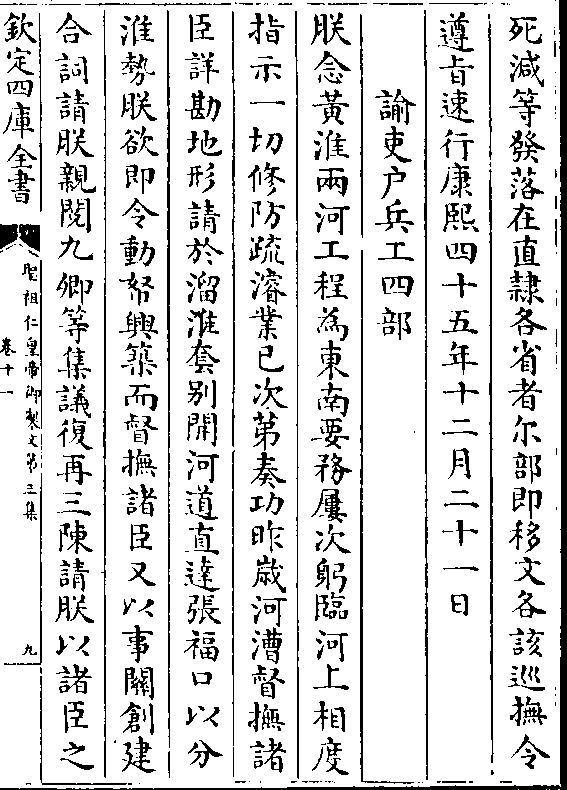 死減等發落在直隷各省者尔部即移文各該巡撫令
遵㫖速行康熙四十五年十二月二十一日
諭吏户兵工四部
朕念黃淮兩河工程為東南要務屢次躬臨河上相度
指示一切修防疏濬業已次第奏功昨歲河漕督撫諸
臣詳勘地形請於溜淮套别開河道直達張福口以分
淮勢朕欲即令動帑興築而督撫諸臣又以事關創建
合詞請朕親閱九卿等集議復再三陳請朕以諸臣之
欽定四庫全書
聖祖仁皇帝御製文第三集
卷十一
九